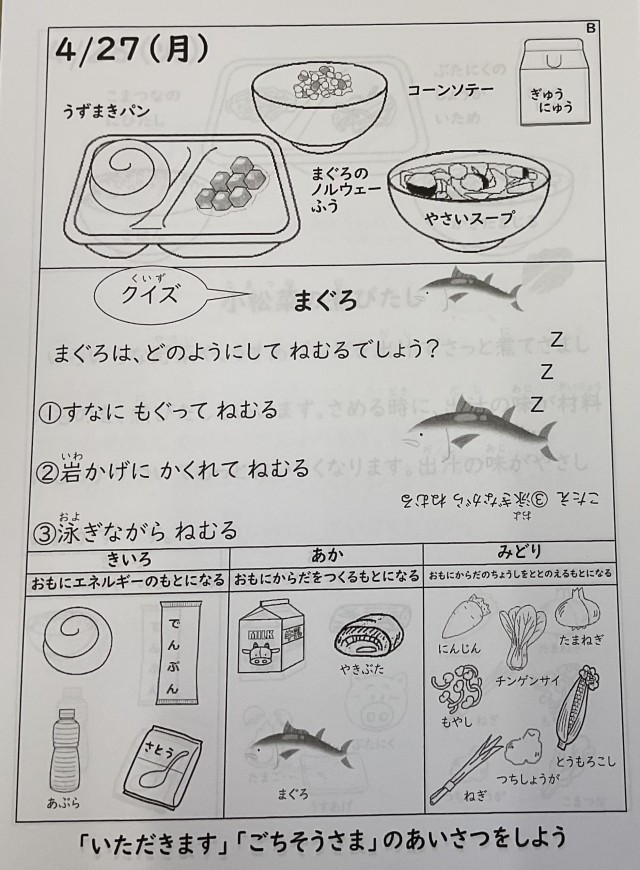 B
4/27(月)
うずまきパン
コーンソテー
ぎゅう
にゅう
まぐろの
ノルウェー
ふう
やさいスープ
くいず
クイズ
まぐろ
まぐろは、どのようにして ねむるでしょう?
Z
Z
Z
①すなに もぐって ねむる
いわ
②岩かげに かくれて ねむる
およ
③泳ぎながら ねむる
およ
こたえ ③泳ぎながら ねむる
きいろ
おもにエネルギーのもとになる
でんぷん
あぶら
さとう
あか
おもにからだをつくるもとになる
MILK
牛乳
やきぶた
まぐろ
みどり
おもにからだのちょうしをととのえるもとになる
にんじん
チンゲンサイ
たまねぎ
もやし
つちしょうが
とうもろこし
ねぎ
「いただきます」「ごちそうさま」のあいさつをしよう